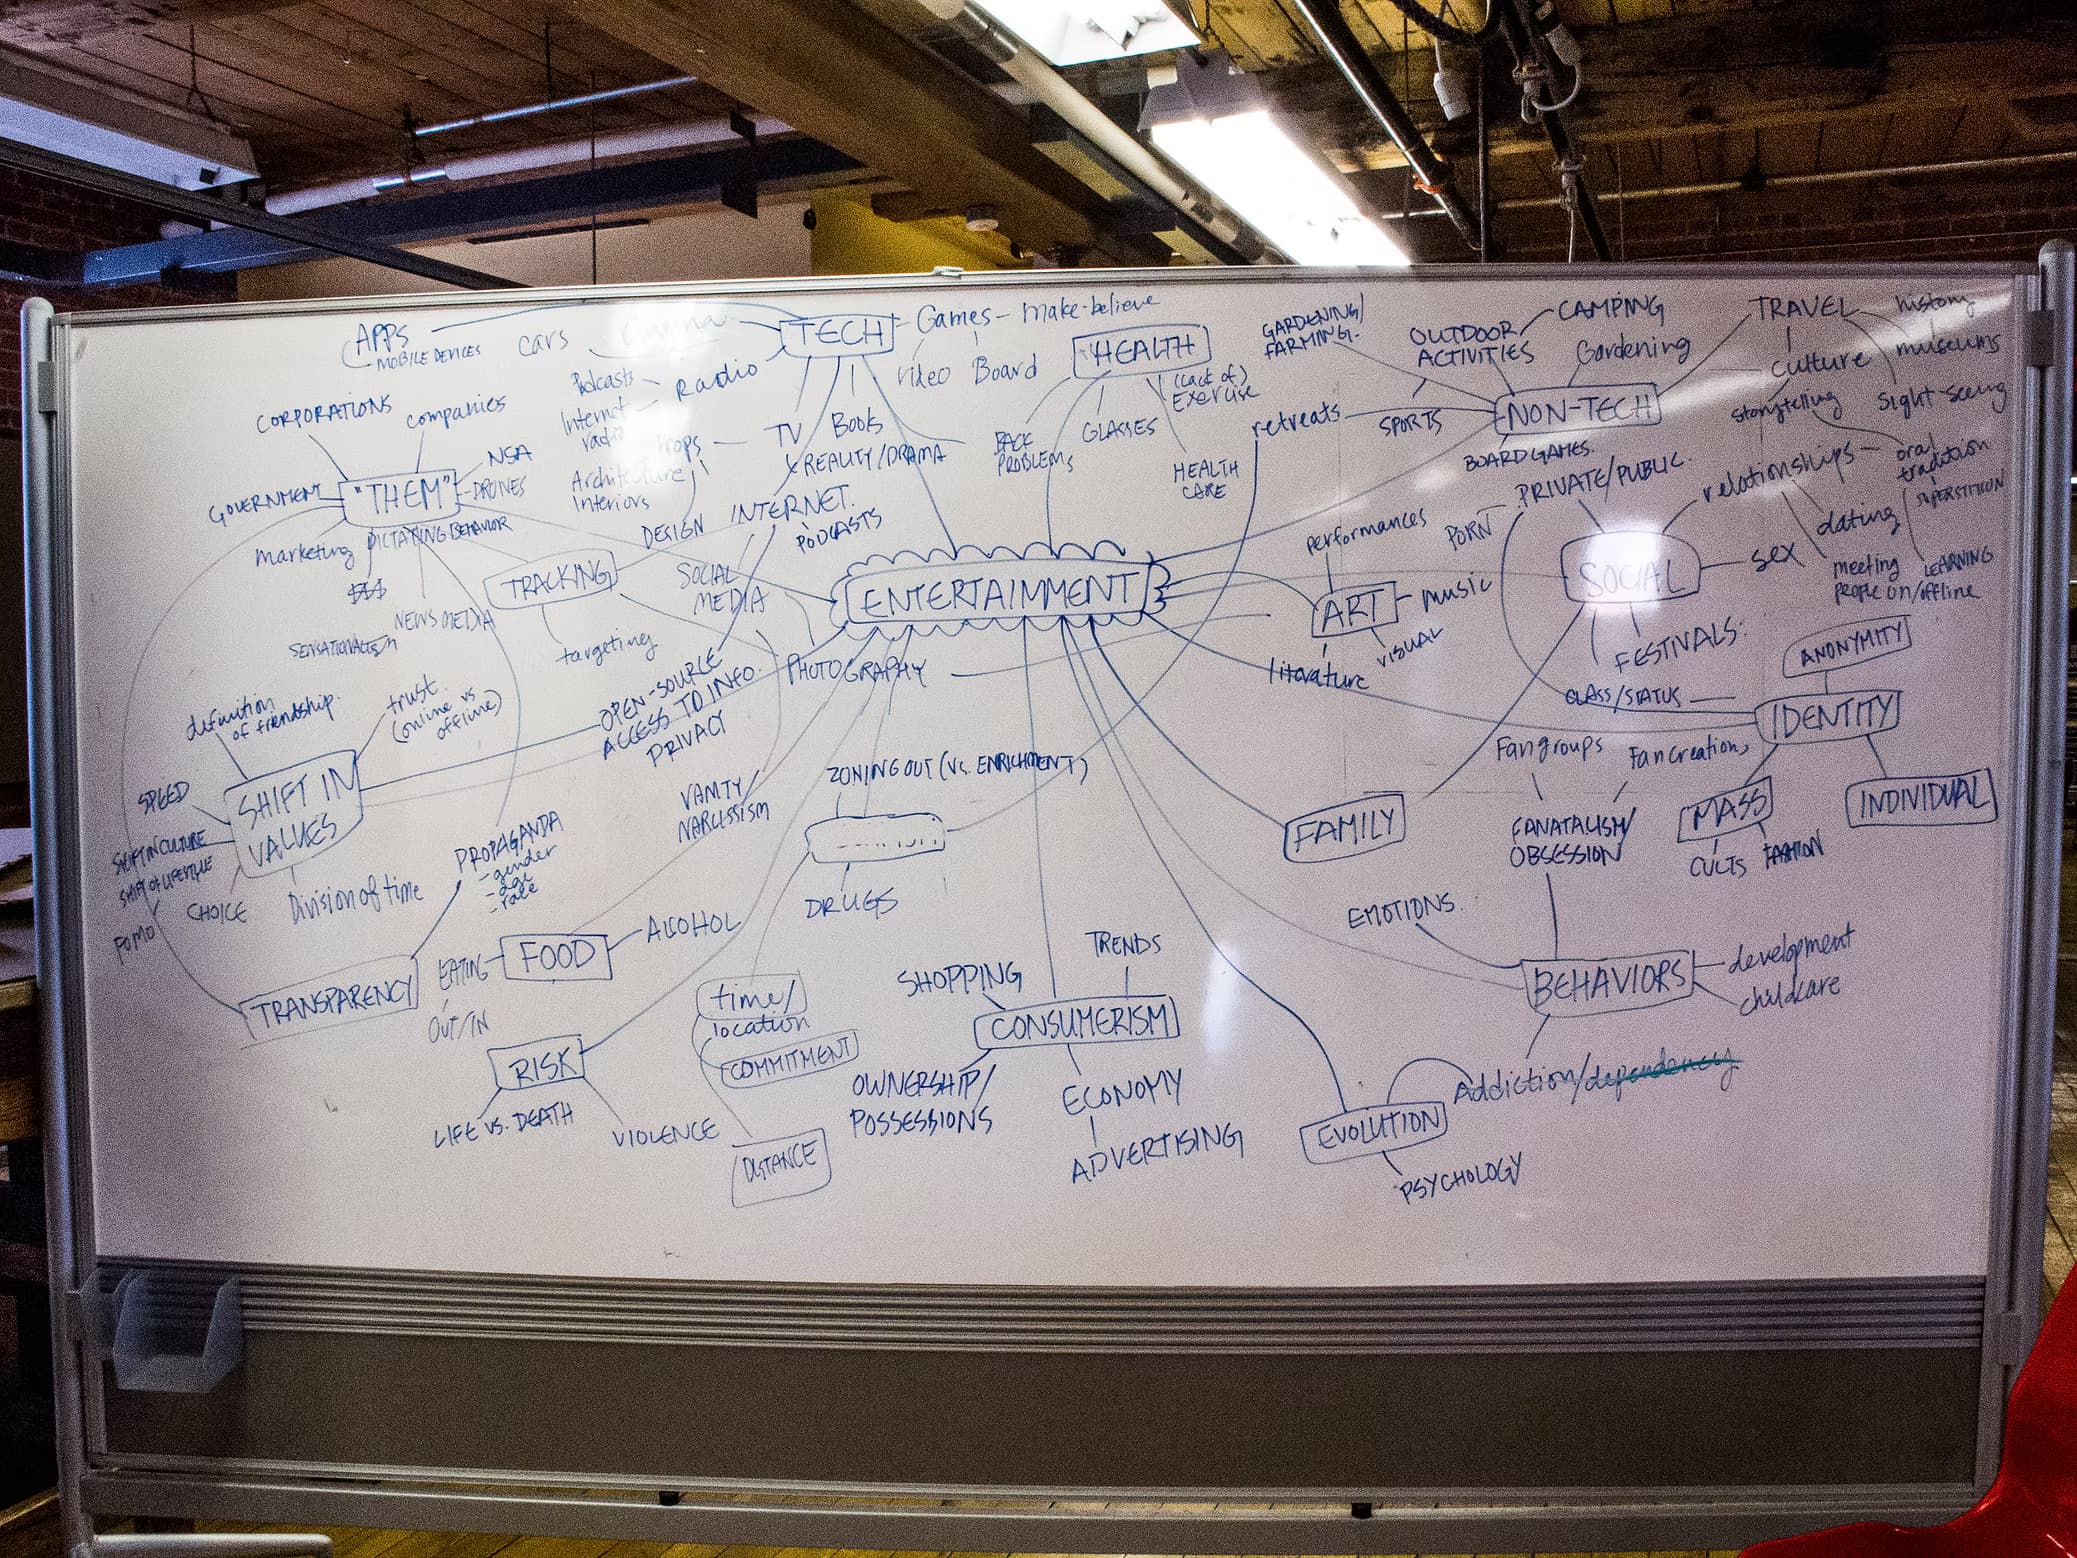 APPS
MOBILE DEVICES
cars
TECH
Games - make-believe
Video
Board
Podcasts
Radio
Internet
radio
Props
TV
Books
REALITY/DRAMA
Architecture
Interiors
DESIGN
INTERNET.
PODCASTS
SOCIAL
MEDIA
"HEALTH
(Lack of)
Exercise
BACK
PROBLEMS
GLASSES
HEALTH
CARE
GARDENING/
FARMING.
OUTDOOR
ACTIVITIES
CAMPING
Gardening
TRAVEL
history
museums
culture
storytelling
sight-seeing
NON-TECH
retreats
SPORTS
BOARD GAMES.
PRIVATE/PUBLIC.
relationships
oral
tradition
SUPERSTITION
dating
PORN
SOCIAL
sex
meeting
people on/offline
LEARNING
FESTIVALS:
CLASS/STATUS
CORPORATIONS
companies
NSA
DRONES
GOVERNMENT
"THEM"
marketing
DICTATING BEHAVIOR
$$$
NEWS MEDIA
SENSATIONALISM
TRACKING
targeting
ENTERTAINMENT
performances
ART
music
visual
literature
PHOTOGRAPHY
OPEN-SOURCE
ACCESS TO INFO.
PRIVACY
ANONYMITY
IDENTITY
MASS
CULTS
FASHION
INDIVIDUAL
definition
of friendship.
trust
(online vs
offline)
SPEED
SHIFT IN
VALUES
SHIFT IN CULTURE
SHIFT of LIFESTYLE
CHOICE
Division of time
FOMO
PROPAGANDA
- gender
- age
- race
TRANSPARENCY
VANITY
NARCISSISM
ZONING OUT (VS. ENRICHMENT)
DRUGS
FAMILY
Fan groups
Fan Creation,
FANATALISM/
OBSESSION
EMOTIONS.
BEHAVIORS
development
childcare
Addiction/dependency
EATING
FOOD
ALCOHOL
OUT/IN
RISK
LIFE VS. DEATH
VIOLENCE
time/
location
COMMITMENT
DISTANCE
TRENDS
SHOPPING
CONSUMERISM
OWNERSHIP/
POSSESSIONS
ECONOMY
ADVERTISING
EVOLUTION
PSYCHOLOGY